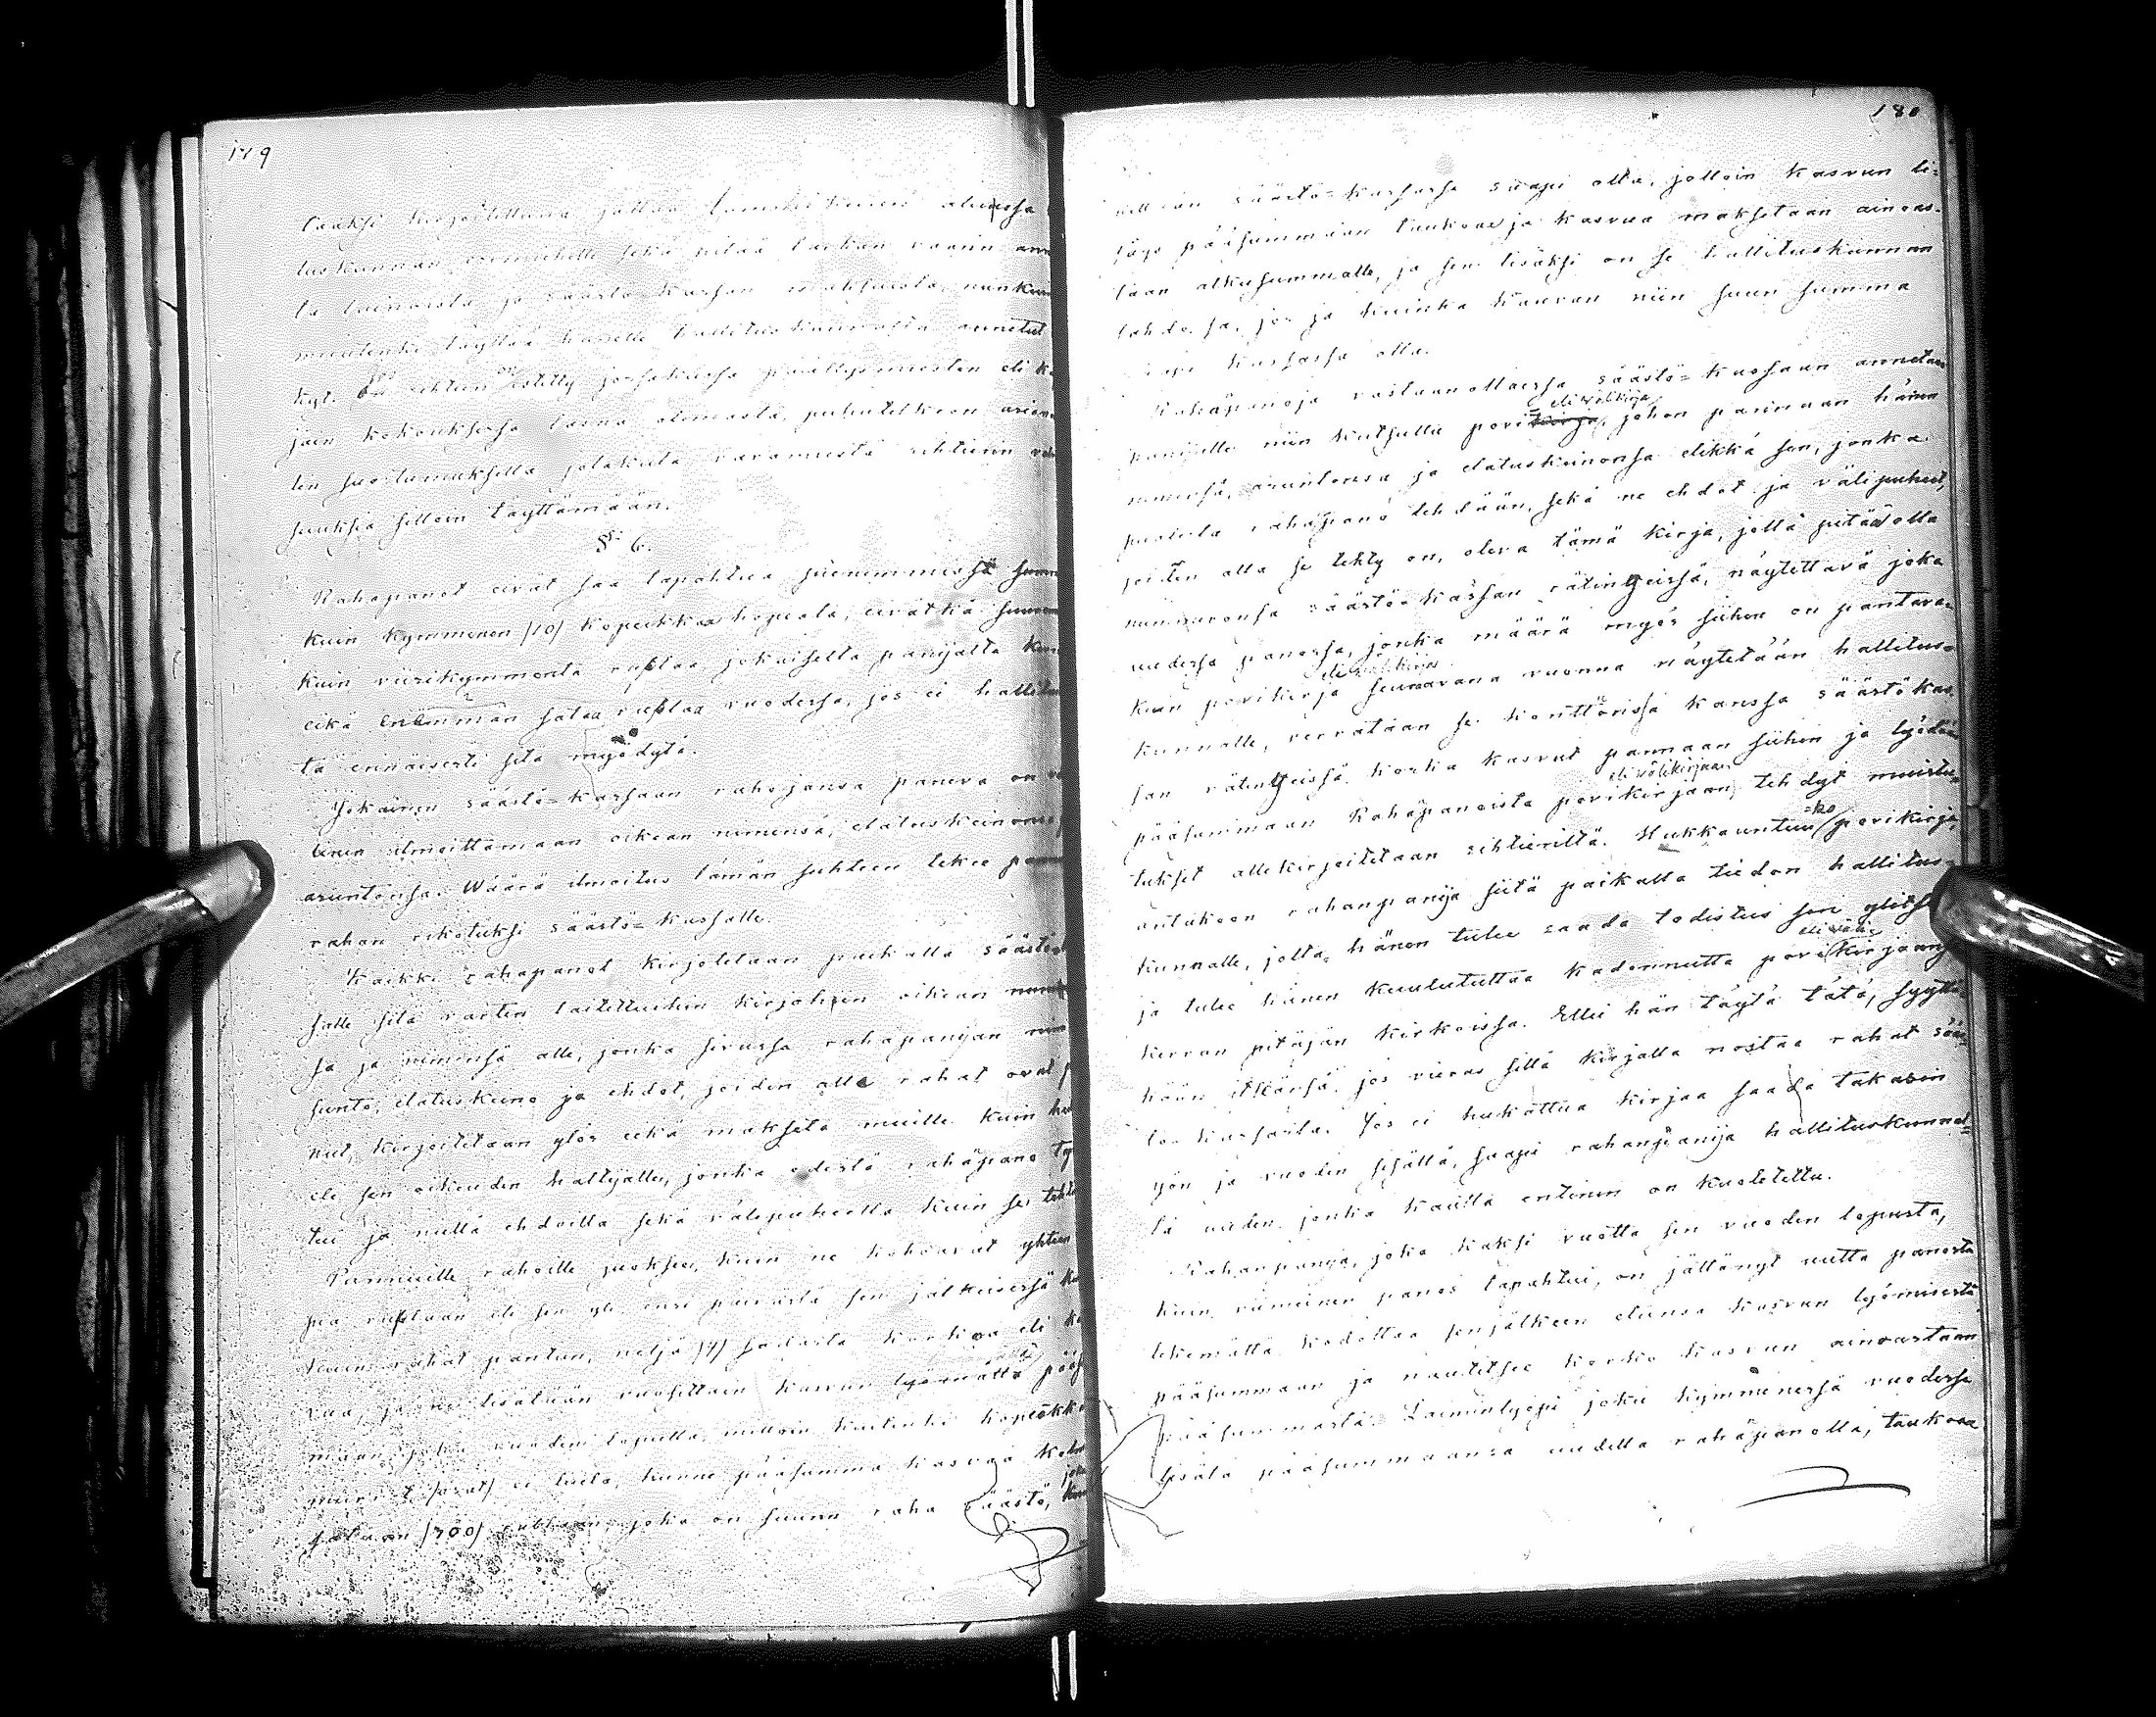 179
luskunnan esimiehelle sekä pitää tarkan vaarin
la lainoista ja säästö-kassan maksuista, niinkuin
muutenki täyttää hänelle hallituskunnalta annetut
kyt. sihtieri estetty jossakussa päällysmiesten eli
jäin kokouksessa läsnä olemasta, puhutelkoon
ten suostumuksella jotakuta varamiestä sihtierin
suuksia silloin täyttämään.
§ 6.
Rahapanot eivät saa tapahtua pienemmässä
kuin kymmenen /10/ kopeikkaa hopeata, eivätkä
kuin viisikymmentä ruplaa, jokaiselta panijalta
eikä enemmän sataa ruplaa vuodessa, jos ei
ta ennäisesti sitä myödytä.
Jokainen säästö-kassaan rahojansa paneva on
ilmoittamaan oikean nimensä, elatuskeinonsa
asuntonsa. Wäärä ilmoitus tämän suhteen tekee
rahan rikotuksi säästö-kassalle.
Kaikki rahapanot kirjotetaan paikalla säästö-
salle sitä varten laitettuihin kirjohin oikean
sa ja nimensä alle, jonka sivussa rahapanijan
sunto, elatuskeino ja ehdot, joiden alla rahat ovat
nut, kirjoitetaan ylös eikä makseta muille kuin
eli sen oikeuden haltijalle, jonka edestä rahapano
tui ja niillä ehdoilla sekä välipuheilla kuin se
Pannuille rahoille juoksee, kuin ne kohoavat yhteen
pää ruplaan eli sen yli ensi päivästä sen jälkeisessä
kuin rahat pantiin, neljä /4/ sadasta korkoa eli
vua, ja ne lisätään vuosittain kasvun lyömällä
mään joka vuoden lopulla, milloin kuitenki kopeikka
murret /osat/ ei lueta, kunne pääsumma kasvaa
sataan /300/ ruplaan, joka on suurin raha säästö,
180
säästö-kassassa saapi olla, jolloin kasvun li-
säys pääsummaan taukoaa ja kasvua maksetaan ainoas-
taan alkusummalle, ja sen lisäksi on se hallituskunnan
tahdossa, jos ja kuinka kauvan niin suuri summa
saapi kassassa olla.
Rahapanoja vastaanottaessa säästö-kassaan annetaan
eli välikirja
panijalle niin kutsuttu peri=kirja, johon pannaan hänen
nimensä, asuntonsa ja elatuskeinonsa elikkä sen, jonka
puolesta rahapano tehdään, sekä ne ehdot ja välipuheet,
joitten alla se tehty on, oleva tämä kirja, jolla pitää olla
nummeronsa säästö-kassan rätingeissä, näytettävä joka
uudessa panossa, jonka määrä myös siihen on pantava.
eli välikirja
Kuin perikirja seuraavana vuonna näytetään hallitus-
kunnalle, verrataan se konttorissa kanssa säästökas-
san rätingeissä, korko kasvut pannaan siihen ja lyödään
eli välikirjaan
pääsummaan. Rahapanoista perikirjaan, tehdyt muistu-
tukset allekirjoitetaan sihtieriltä. Hukkauntuuko perikirja,
antakoon rahanpanija siitä paikalla tiedon hallitus-
kunnalle, jolta hänen tulee saada todistus sen ylitse
eli väli-
ja tulee hänen kuuluttuttaa kadonnutta perikirjaansa
kerran pitäjän kirkoissa. Ellei hän täytä tätä, syyttä-
köön itseänsä, jos vieras sillä kirjalla nostaa rahat sääs-
tö kassasta. Jos ei hukattua kirjaa saada takasin
yön ja vuoden sisällä, saapi rahanpanija hallituskunnal-
ta uuden, jonka kautta entinen on kuoletettu.
Rahanpanija, joka kaksi vuotta sen vuoden lopusta,
kuin viimeinen panos tapahtui, on jättänyt uutta panosta
tekemättä kadottaa senjälkeen etunsa kasvun lyömisestä
pääsummaan ja nautitsee korko kasvun ainoastaan
pääsummasta. Laiminlyöpi joku kymmenessä vuodessa
lisätä pääsummaansa uudella rahapanolla, taukoaa